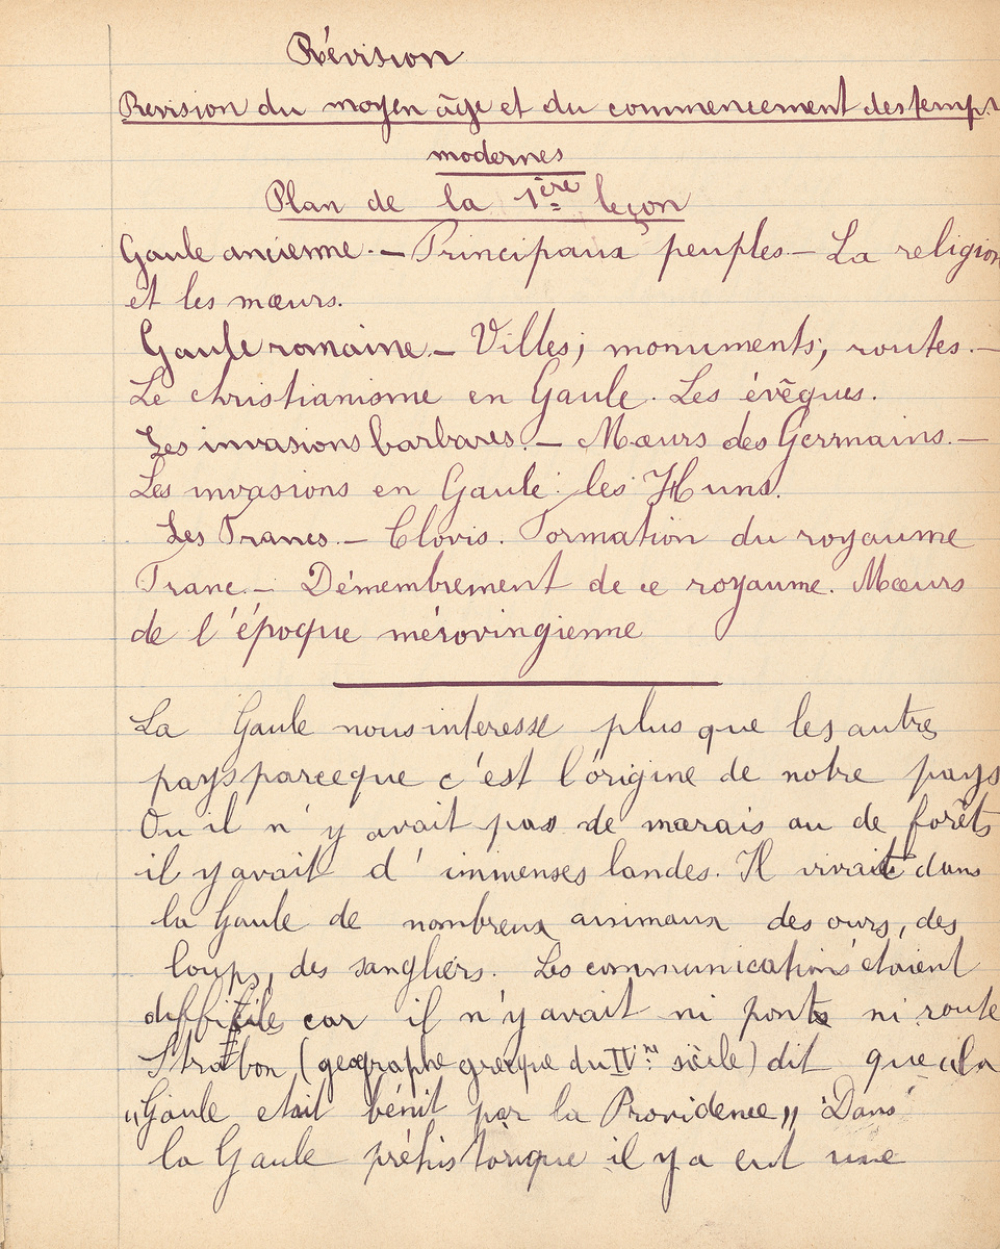 Révision
Revision du moyen âge et du commencement des temps
modernes
Plan de la 1ère leçon
Gaule ancienne. — Principaux peuples — La religion
et les mœurs.
Gaule romaine. — Villes; monuments; routes. —
Le christianisme en Gaule. Les évêques.
Les invasions barbares. — Mœurs des Germains. —
Les invasions en Gaule: les Huns.
Les Francs. — Clovis. Formation du royaume
Franc. — Démembrement de ce royaume. Mœurs
de l'époque mérovingienne
La Gaule nous interesse plus que les autres
pays parceque c'est l'origine de notre pays
Ou il n'y avait pas de marais ou de forêts
il y avait d'immenses landes. Il vivait dans
la Gaule de nombreux animaux des ours, des
loups, des sangliers. Les communications étaient
difficile car il n'y avait ni ponts ni route
Strabon (geographe grecque du IVme siècle) dit que
„Gaule etait bénit par la Providence„ Dans
la Gaule préhistorique il y a eut une